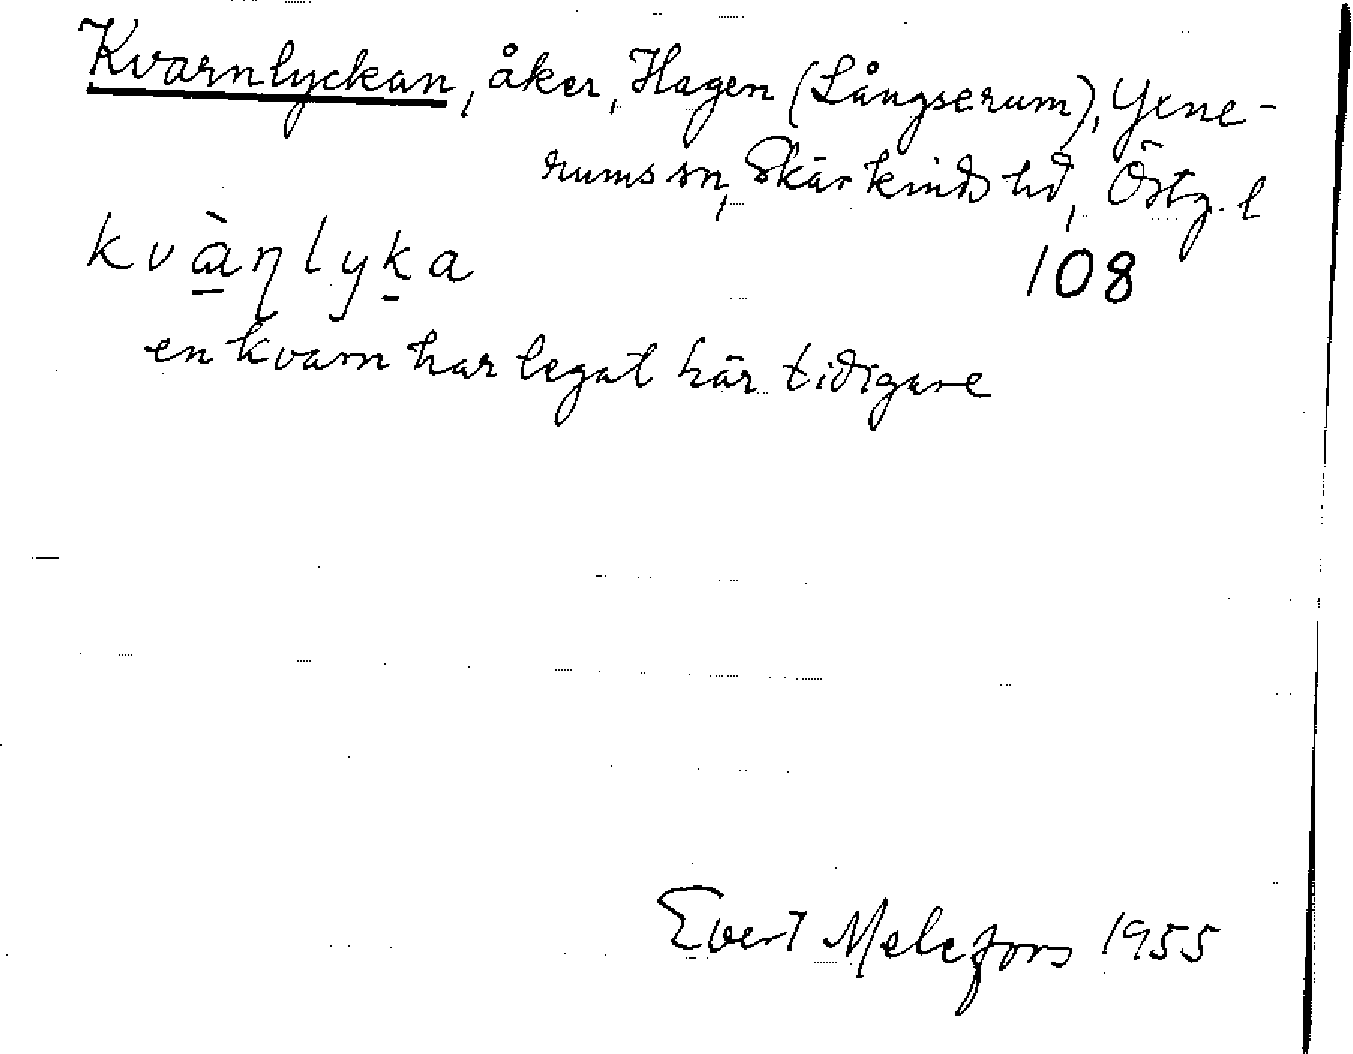 Kvarnlyckan, åker, Hagen (Långserum), Yxne-
rums sn, Skärkinds hd, Östg. l
kvàṇlyka
108
en kvarn har legat här tidigare
Evert Melefors 1955